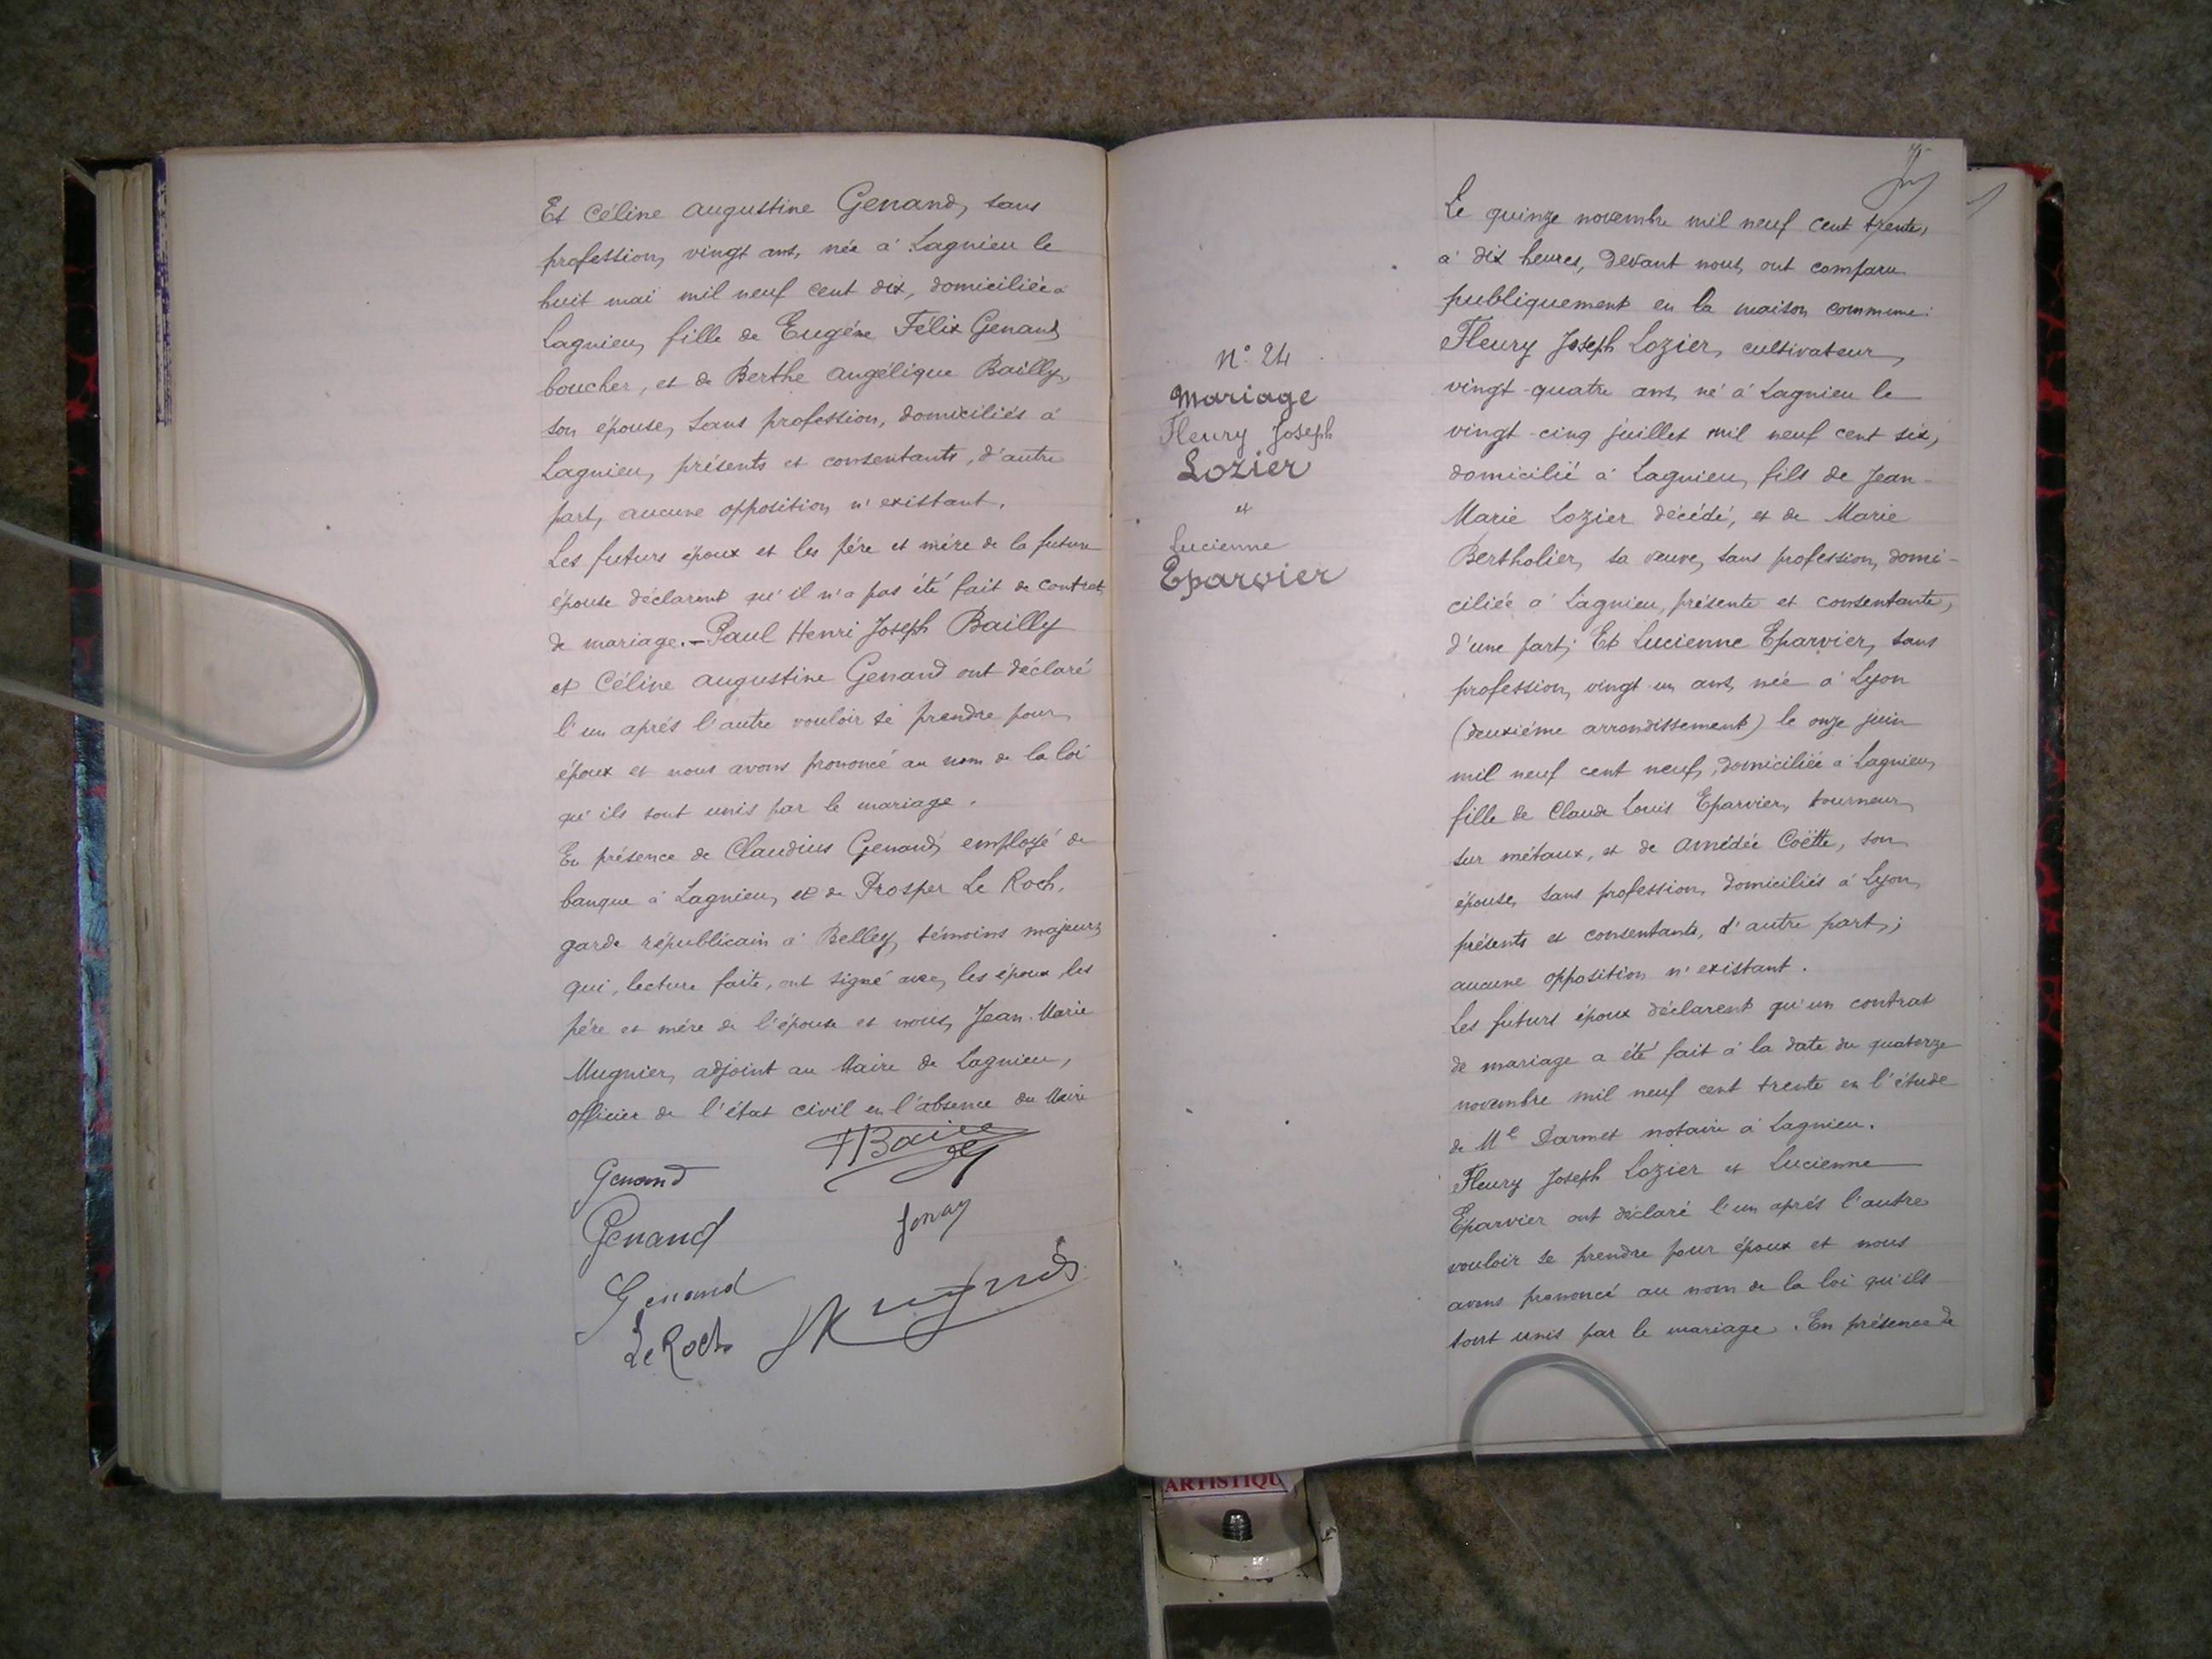 Et Céline Augustine Genand, sans
profession, vingt ans, née à Lagnieu le
huit mai mil neuf cent dix, domiciliée à
Lagnieu, fille de Eugène Félix Genand
boucher, et de Berthe Angélique Bailly,
son épouse, sans profession, domiciliés à
Lagnieu, présents et consentants, d'autre
part, aucune opposition n'existant.
Les futurs époux et les père et mère de la future
épouse déclarent qu'il n'a pas été fait de contrat
de mariage. - Paul Henri Joseph Bailly
et Céline Augustine Genand ont déclaré
l'un après l'autre vouloir se prendre pour
époux et nous avons prononcé au nom de la loi
qu'ils sont unis par le mariage.
En présence de Claudius Genand, employé de
banque à Lagnieu, et de Prosper Le Roch,
garde républicain à Belley, témoins majeurs,
qui, lecture faite, ont signé avec les époux, les
père et mère de l'épouse et nous, Jean-Marie
Mugnier, adjoint au Maire de Lagnieu,
officier de l'état civil en l'absence du Maire
Genand
Genand
Genand
Le Roch
N° 24
Mariage
Fleury Joseph
Lozier
et
Lucienne
Eparvier
Le quinze novembre mil neuf cent trente,
à dix heures, devant nous, ont comparu
publiquement en la maison commune:
Fleury Joseph Lozier, cultivateur,
vingt-quatre ans, né à Lagnieu le
vingt-cinq juillet mil neuf cent six,
domicilié à Lagnieu, fils de Jean-
Marie Lozier décédé, et de Marie
Bertholier, sa veuve, sans profession, domi-
ciliée à Lagnieu, présente et consentante,
d'une part; Et Lucienne Eparvier, sans
profession, vingt-un ans, née à Lyon
(deuxième arrondissement) le onze juin
mil neuf cent neuf, domiciliée à Lagnieu,
fille de Claude Louis Eparvier, tourneur
sur métaux, et de Amédée Coëtte, son
épouse, sans profession, domiciliés à Lyon,
présents et consentants, d'autre part;
aucune opposition n'existant.
Les futurs époux déclarent qu'un contrat
de mariage a été fait à la date du quatorze
novembre mil neuf cent trente en l'étude
de Me Darmet notaire à Lagnieu.
Fleury Joseph Lozier et Lucienne
Eparvier ont déclaré l'un après l'autre
vouloir se prendre pour époux et nous
avons prononcé au nom de la loi qu'ils
sont unis par le mariage. En présence de
ARTISTIQU